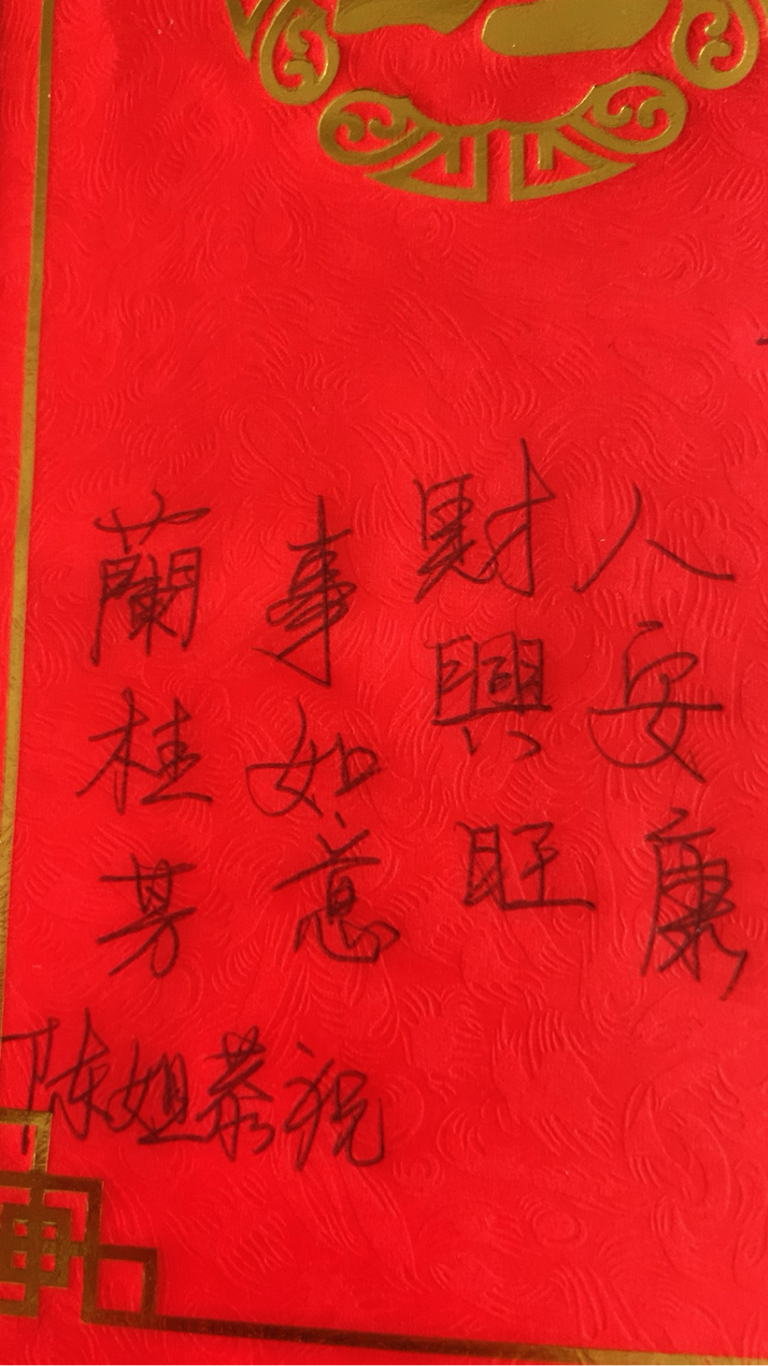 人安康
財興旺
事如意
蘭桂芳
陈姐恭祝